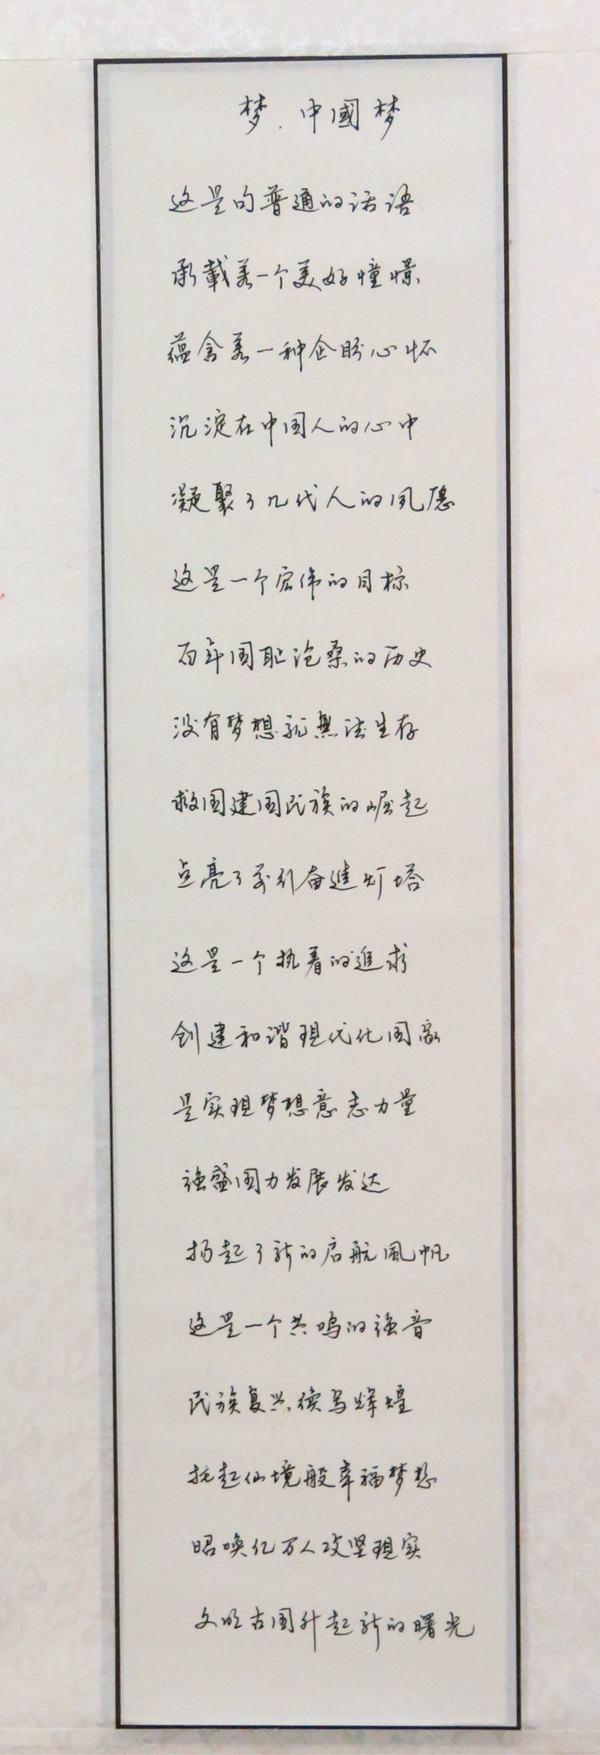 梦.中國梦
这是句普通的话语
承載着一个美好憧憬
蕴含着一种企盼心怀
沉淀在中国人的心中
凝聚了几代人的夙愿
这是一个宏伟的目标
百年国耻沧桑的历史
没有梦想就無法生存
救国建国民族的崛起
点亮了前引奋進灯塔
这是一个执着的追求
创建和谐现代化国家
是实现梦想意志力量
强盛国力发展发达
扬起了新的启航風帆
这是一个共鸣的强音
民族复兴续写辉煌
托起仙境般幸福梦想
昭唤亿万人攻坚现实
文明古国升起新的曙光